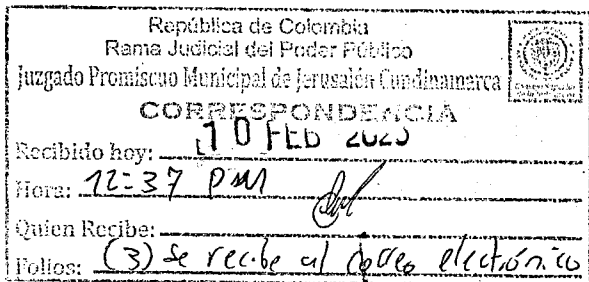 República de Colombia
Rama Judicial del Poder Público
Juzgado Promiscuo Municipal de Jerusalén Cundinamarca
CORRESPONDENCIA
Recibido hoy: 10 FEB
Hora: 12:37 PM
Quien Recibe:
Folios: (3) se recibe al correo electrónico